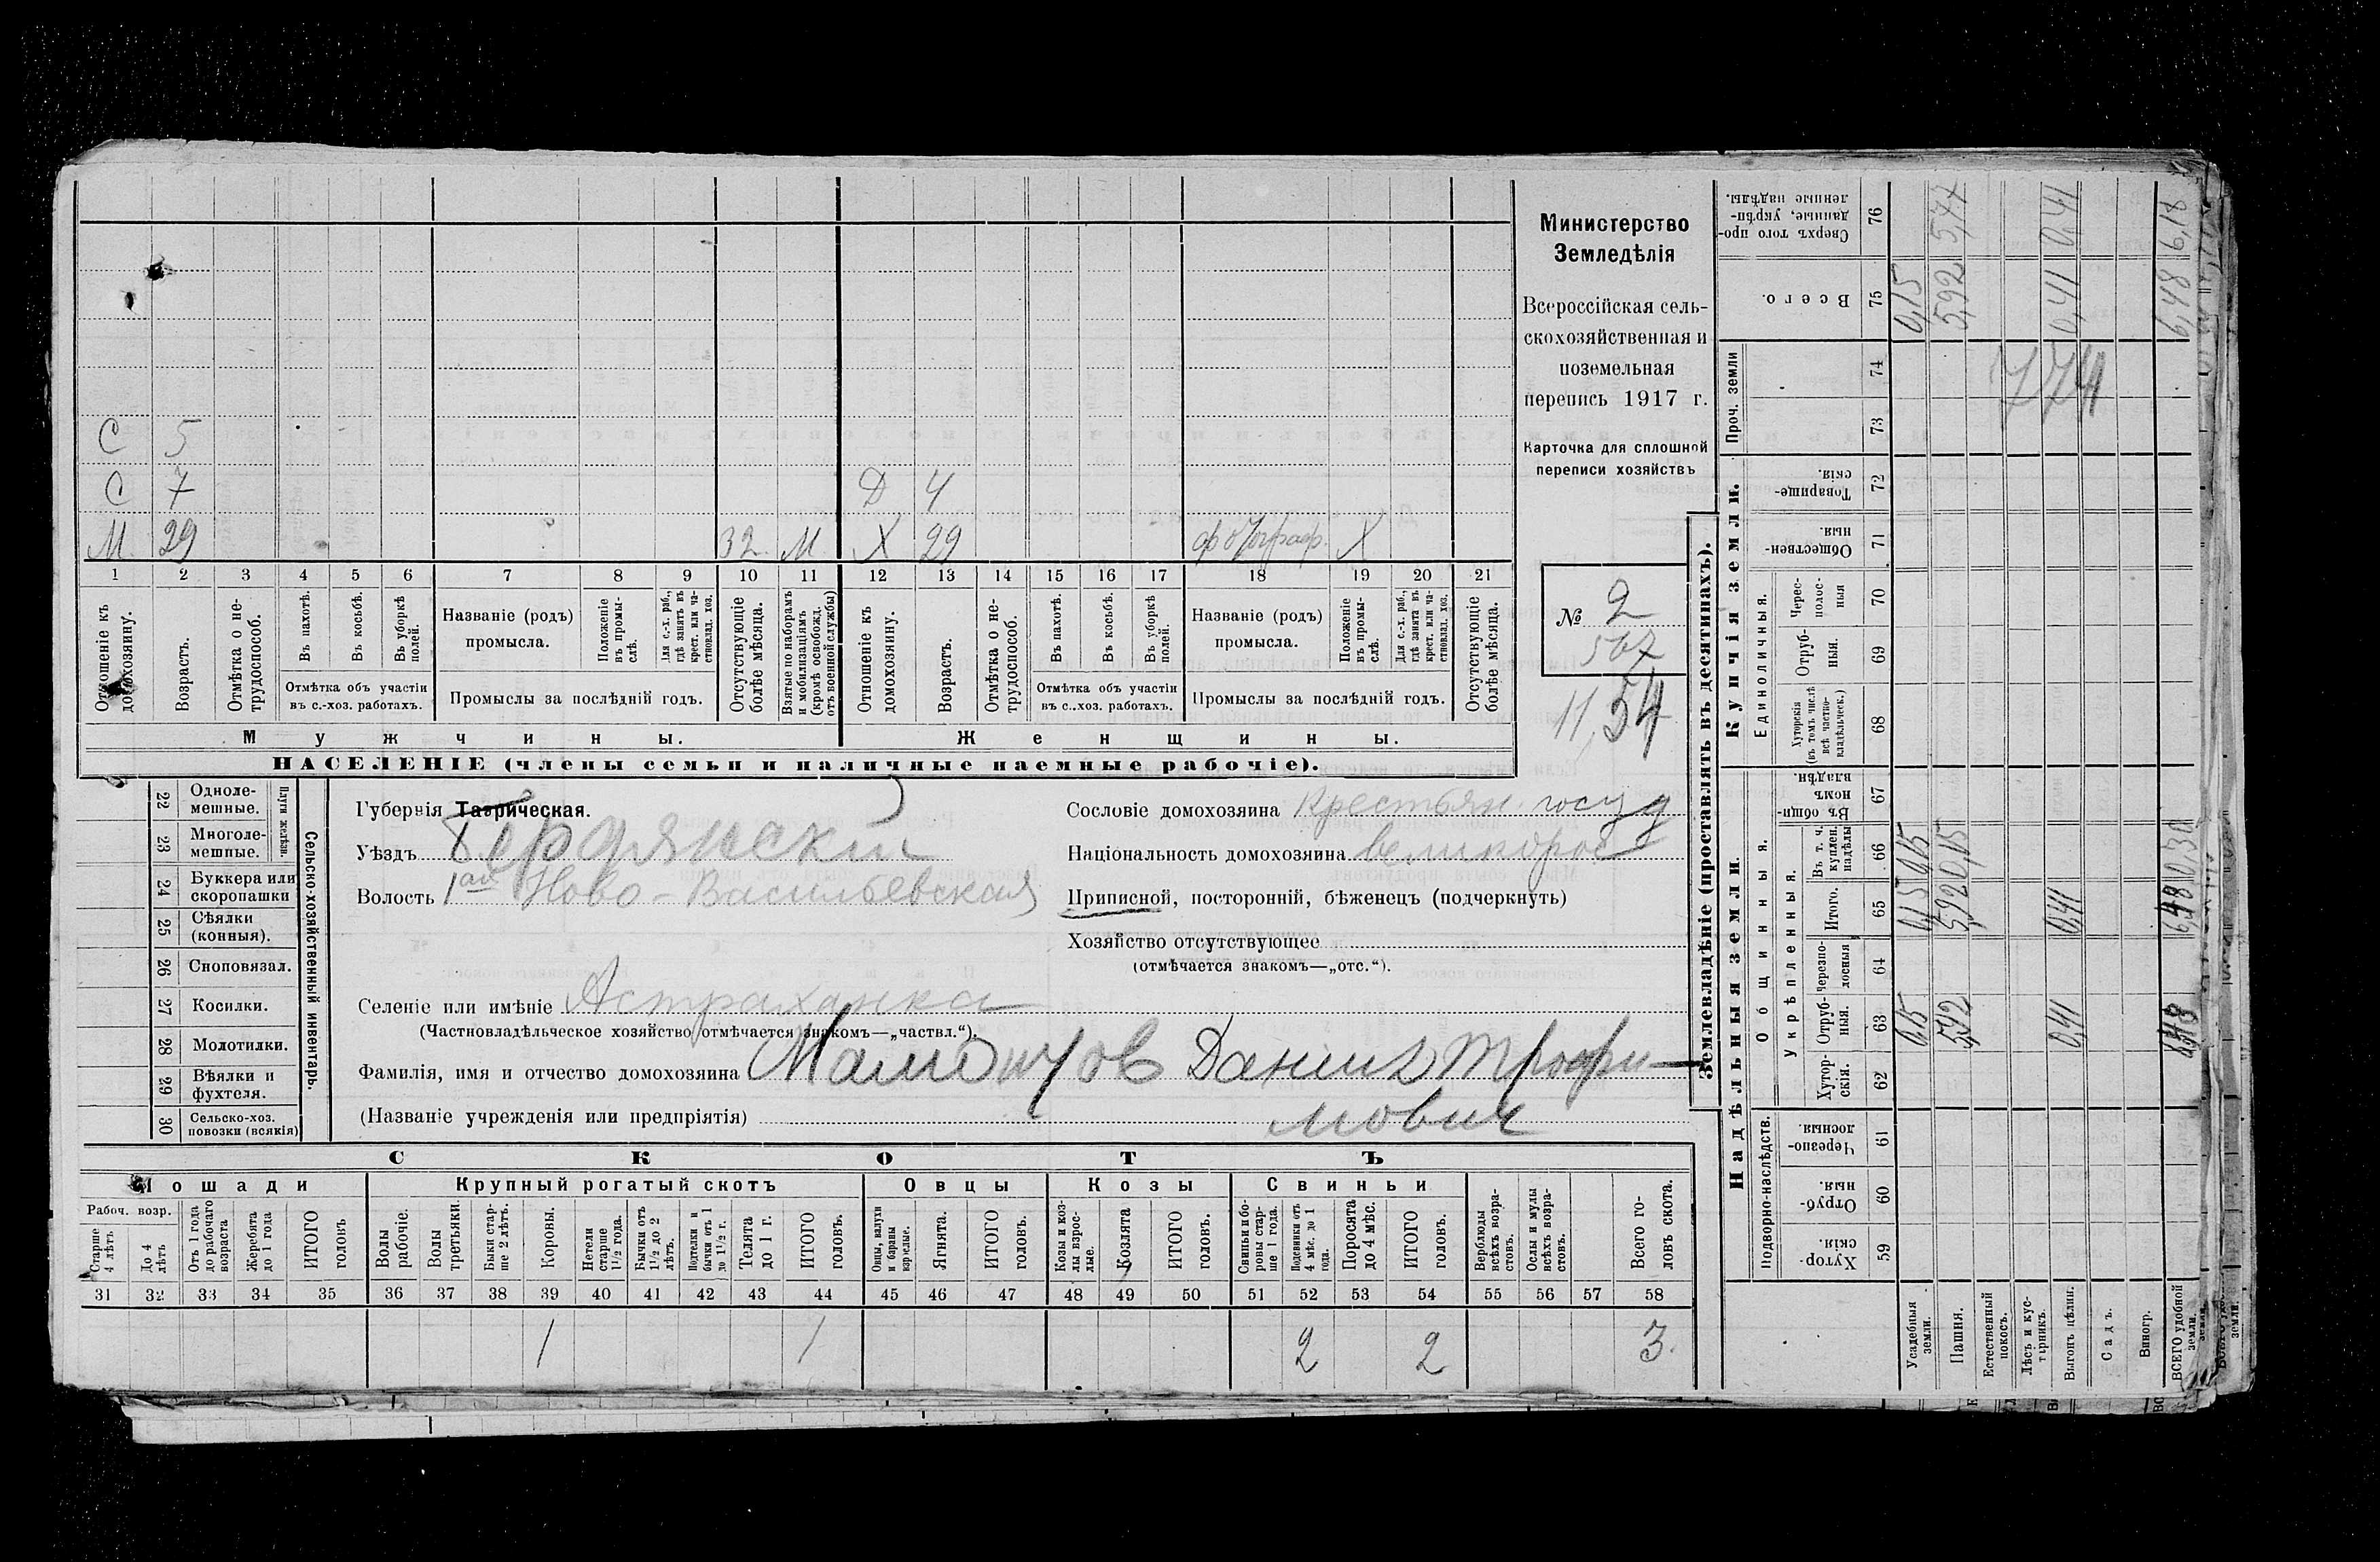 С 5
С 7 Д 4
М 29 32 М Х 29 фотограф. Х
1 2 3 4 5 6 7 8 9 10 11 12 13 14 15 16 17 18 19 20 21
Отношеніе къ домохозяину.
Возрастъ.
Отмѣтка о нетрудоспособ.
Въ пахотѣ.
Въ косьбѣ.
Въ уборкѣ полей.
Отмѣтка объ участіи
въ с.-хоз. работахъ.
Названіе (родъ)
промысла.
Положеніе въ промыслѣ.
Для с.-х. раб., гдѣ занятъ въ крест. или частновлад. хоз.
Промыслы за послѣдній годъ.
Отсутствующіе болѣе мѣсяца.
Взятые по наборамъ и мобилизаціямъ (кромѣ освобожд. отъ военной службы)
Отношеніе къ домохозяину.
Возрастъ.
Отмѣтка о нетрудоспособ.
Въ пахотѣ.
Въ косьбѣ.
Въ уборкѣ полей.
Отмѣтка объ участіи
въ с.-хоз. работахъ.
Названіе (родъ)
промысла.
Положеніе въ промыслѣ.
Для с.-х. раб., гдѣ занята въ крест. или частновлад. хоз.
Промыслы за послѣдній годъ.
Отсутствующіе болѣе мѣсяца.
Мужчины. Женщины.
НАСЕЛЕНІЕ (члены семьи и наличные наемные рабочіе).
Министерство
Земледѣлія
Всероссійская сель-
скохозяйственная и
поземельная
перепись 1917 г.
Карточка для сплошной
переписи хозяйствъ
№ 2
507
11 54
22 Одноле-
мешные.
23 Многоле-
мешные.
Плуги желѣзн.
24 Буккера или
скоропашки
25 Сѣялки
(конныя).
26 Сноповязал.
27 Косилки.
28 Молотилки.
29 Вѣялки и
фухтеля.
30 Сельско-хоз.
повозки (всякія)
Сельско-хозяйственный инвентарь.
Губернія Таврическая.
Уѣздъ Бердянскій
Волость 1ая Ново-Васильевская
Селеніе или имѣніе Астраханка
(Частновладѣльческое хозяйство отмѣчается знакомъ—„частвл.“).
Фамилія, имя и отчество домохозяина Мамонтов Данiил Трофи-
(Названіе учрежденія или предпріятія) мович
Сословіе домохозяина Крестьян. госуд
Національность домохозяина великорос
Приписной, посторонній, бѣженецъ (подчеркнуть)
Хозяйство отсутствующее
(отмѣчается знакомъ—„отс.“).
СКОТЪ
Лошади Крупный рогатый скотъ Овцы Козы Свиньи
Рабоч. возр.
Старше 4 лѣтъ
До 4 лѣтъ
Отъ 1 года до рабочаго возраста
Жеребята до 1 года
ИТОГО головъ
Волы рабочіе.
Волы третьяки.
Быки старше 2 лѣтъ.
Коровы.
Нетели старше 1½ года.
Бычки отъ 1½ до 2 лѣтъ.
Подтелки и бычки отъ 1 до 1½ г.
Телята до 1 г.
ИТОГО головъ.
Овцы, валухи и бараны взрослые.
Ягнята.
ИТОГО головъ.
Козы и козлы взрослые.
Козлята
ИТОГО головъ.
Свиньи и боровы старше 1 года.
Подсвинки отъ 4 мѣс. до 1 года.
Поросята до 4 мѣс.
ИТОГО головъ.
Верблюды всѣхъ возрастовъ.
Ослы и мулы всѣхъ возрастовъ.
Всего головъ скота.
31 32 33 34 35 36 37 38 39 40 41 42 43 44 45 46 47 48 49 50 51 52 53 54 55 56 57 58
1 1 2 2 3
Землевладѣніе (проставлять въ десятинахъ).
Надѣльныя земли. Купчія земли. Проч. земли
Подворно-наслѣдств. Общинныя. Единоличныя.
Укрѣпленныя.
Хуторскія. 59
Отрубныя. 60
Черезполосныя 61
Хуторскія. 62
Отрубныя. 63
Черезполосныя 64
Итого. 65
Въ т. ч. куплен. надѣлы 66
Въ общинномъ владѣн. 67
Хуторскія (въ томъ числѣ всѣ частновладѣльческ.) 68
Отрубныя. 69
Чересполосныя 70
Общественныя. 71
Товарищескія. 72
73 74
Всего. 75
Сверхъ того проданные, укрѣпленные надѣлы. 76
Усадебныя земли. 0,15 0,15 0,15 0,15
Пашня. 5,92 5,92 0,15 5,92 5,77
Естественный покосъ.
Лѣсъ и кустарникъ.
Выгонъ цѣлин. 0,41 0,41 0,41 0,41
Садъ.
Виногр.
ВСЕГО удобной земли. 6,48 6,48 0,30 6,48 6,18
774